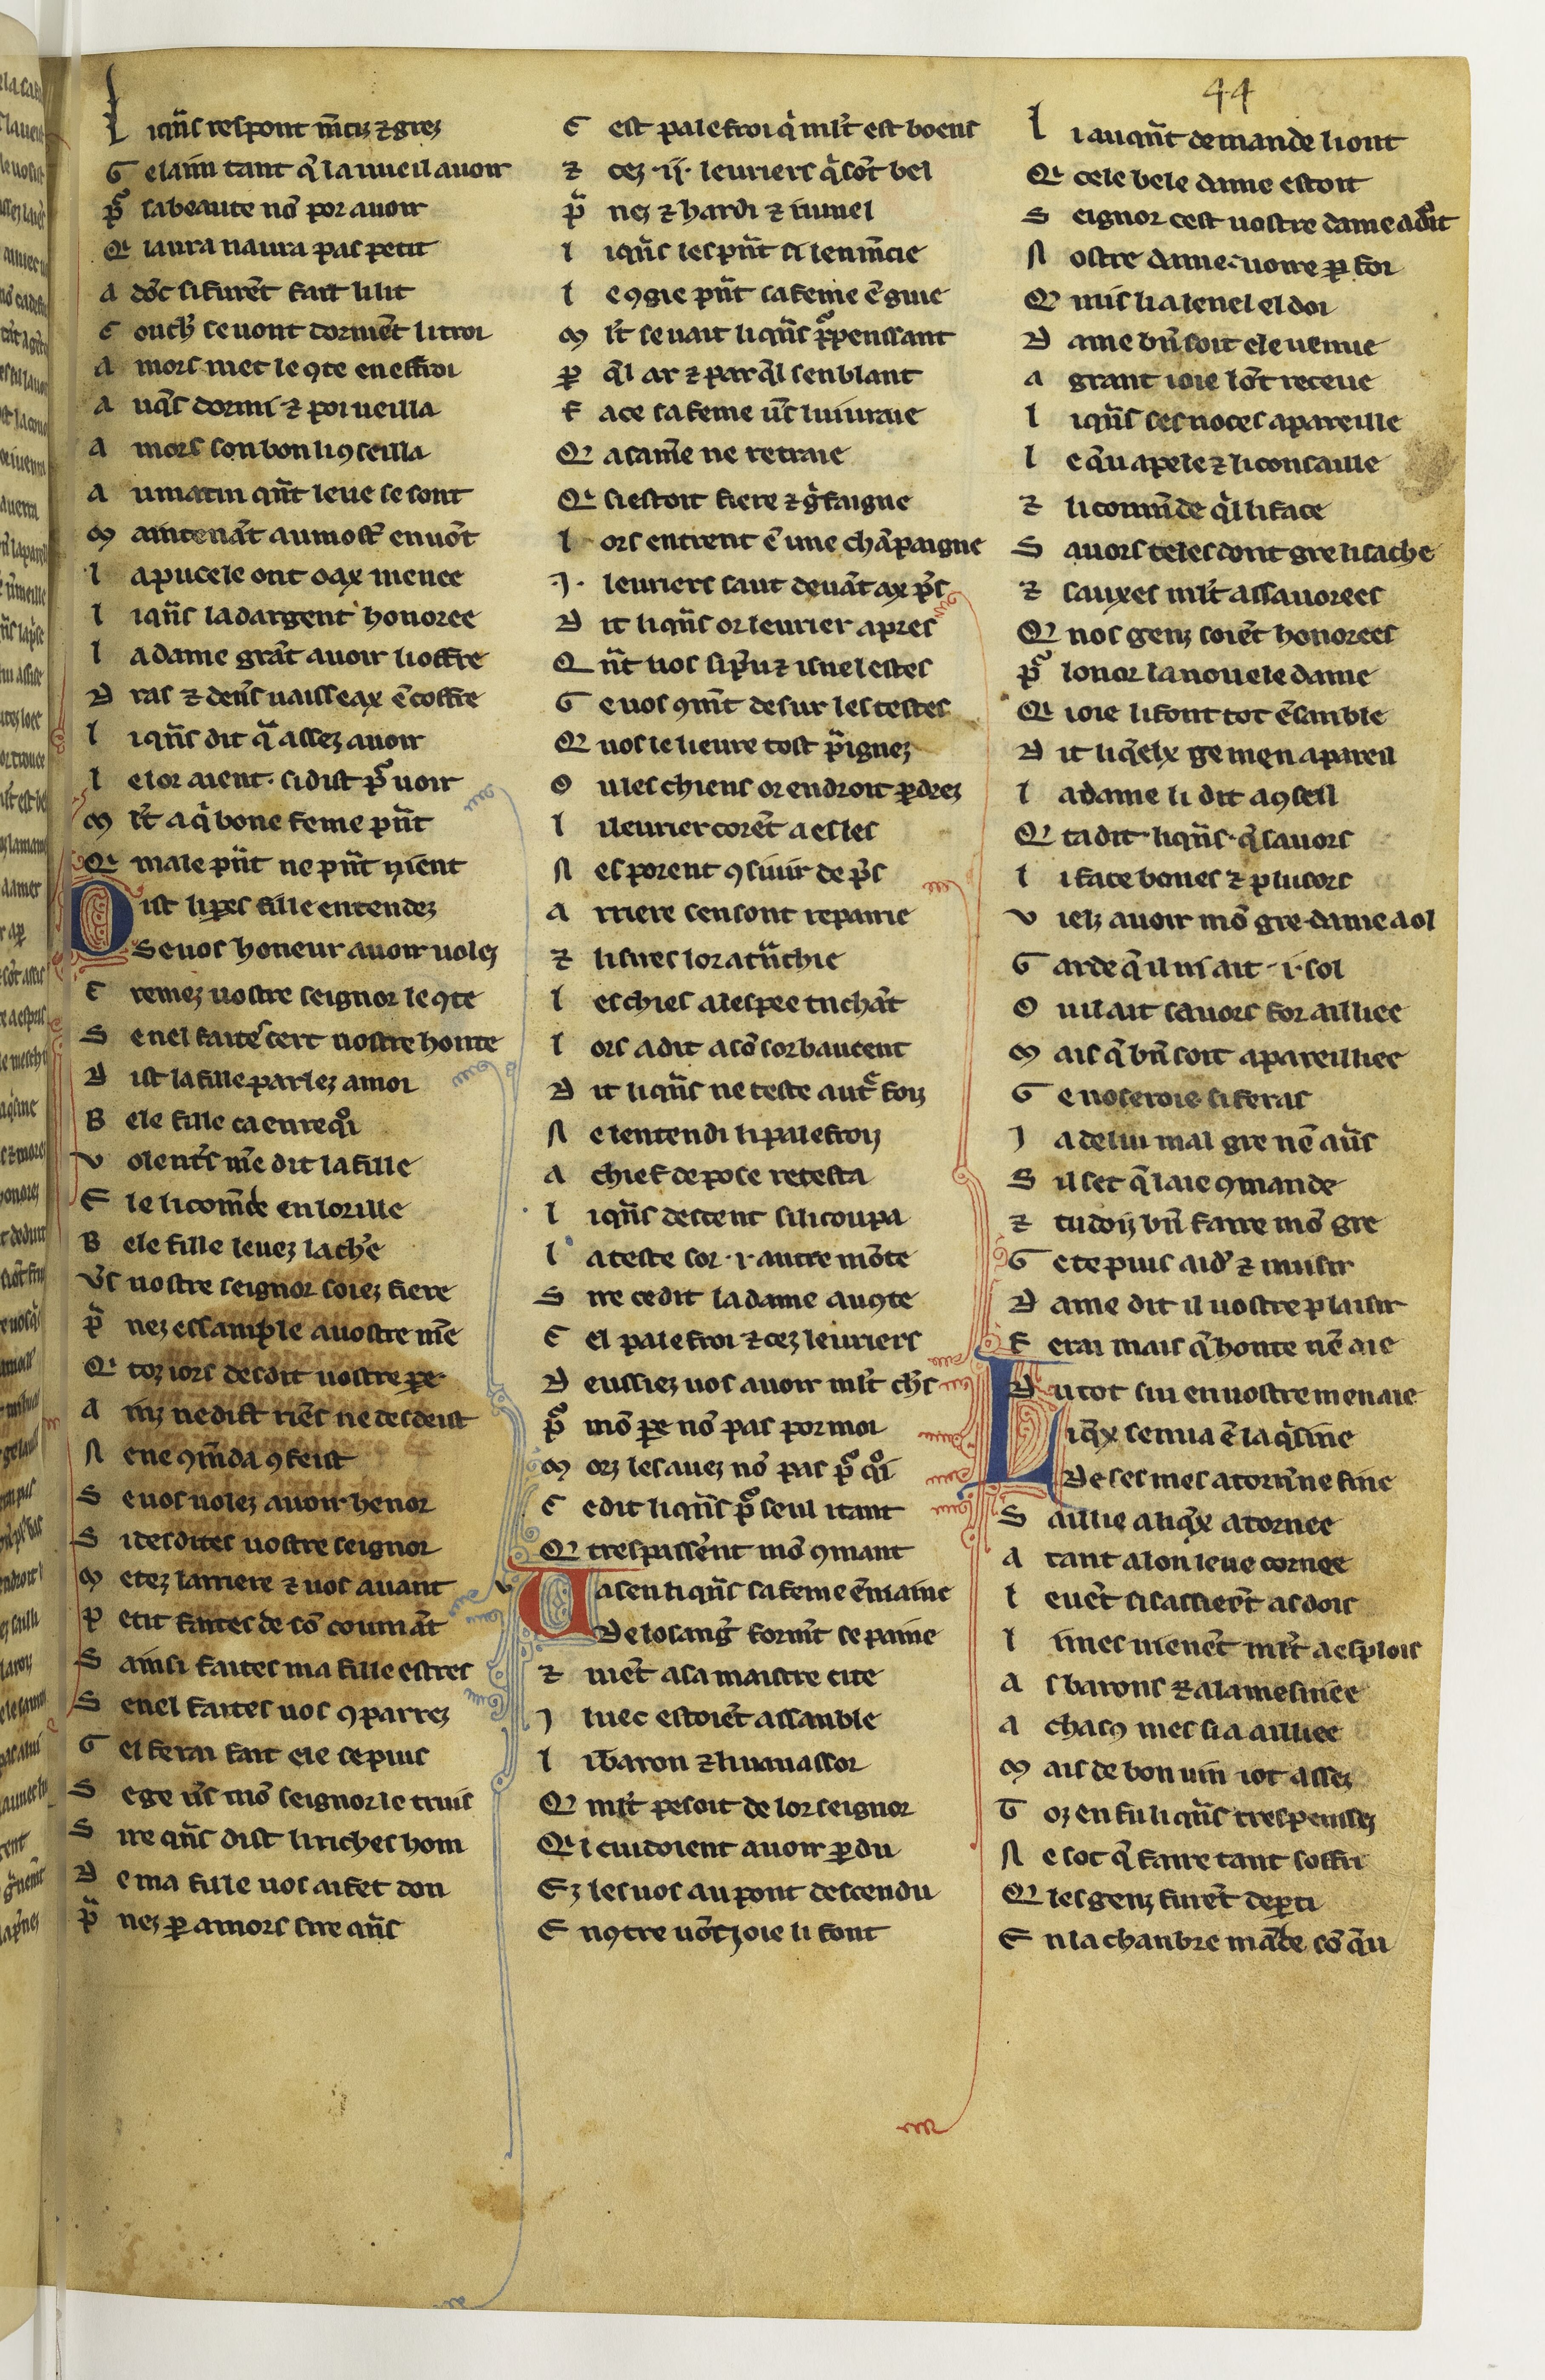 44
L i qn̄s respont m̄ciz ⁊ grez
G e laim tant q̄ la uueil auoir
p̄ sa beaute nō por auoir
Qi laura naura pas petit
A dōc si furēt fait li lit
C ouch' se uont dormēt li troi
A mors met le ꝯte en effroi
A uq̄s dormi ⁊ poi ueilla
A mors son bon li ꝯseilla
A u matin qn̄t leue se sont
M aintenāt au most' en uōt
L a pucele ont o ax menee
L i qn̄s la dargent honoree
L a dame grāt auoir li offre
D ras ⁊ den̄s uaisseax ē coffre
L i qn̄s dit q̄ assez auoir
L e lor aient. si dist p̄ uoir
M lt̄ a q̄ bone feme pn̄t
Qi male pn̄t ne pn̄t nient
Dist li peres fille entendez
Se uos honeur auoir uolez
C remez uostre seignor le ꝯte
S e nel faites cert uostre honte
D ist la fille parlez a moi
B ele fille ca en reqoi
V olent's m̄e dit la fille
E le li com̄de en lorille
B ele fille leuez la ch'e
V's uostre seignor soiez fiere
p̄ nez essample a uostre m̄e
Qi toz iors desdit uostre ꝑe
A inz ne dist riēs ne desdeist
N ene ꝯm̄da ꝯ feist
S e uos uolez auoir henor
S i desdites uostre seignor
M etez larriere ⁊ uos auant
P etit faites de sō coumāt
S ainsi faites ma fille estres
S e nel faites uos ꝯparrez
G el ferai fait ele se puis
S e ge u's mō seignor le truis
S ire qn̄s dist li riches hom
D e ma fille uos ai fet don
p̄ nez ꝑ amors sire qn̄s
C est palefroi q̄ mlt̄ est boens
⁊ cez .ii. leuriers q̄ sōt bel
p̄ nez ⁊ hardi ⁊ isnel
L i qn̄s les pn̄t si len m̄cie
L e ꝯgie pn̄t sa feme ē guie
M lt̄ se uait li qn̄s p̄ pensant
P q̄l art ⁊ par q̄l senblant
F ace sa feme u's lui uraie
Q a sa m̄e ne retraie
Qi si estoit fiere ⁊ ḡfaigne
L ors entrent ē une chāpaigne
.I. leuriers saut deuāt ax p's
D it li qn̄s or leurier apres
Q n̄t uos si p̄u ⁊ isnel estes
G e uos ꝯm̄t de sur les testes
Q uos le lieure tost p̄ignez
O u les chiens or endroit ꝑdrez
L i leurier corēt a esles
N el porent ꝯsiuir de p's
A rriere sen sont repairie
⁊ li sires lor a tn̄chie
L es chies a lespee tnchāt
L ors a dit a sō sor baucent
D it li qn̄s ne ceste aut' foiz
N e lentendi li palefroiz
A chief de pose recesta
L i qn̄s descent si li coupa
L a teste sor .i. autre mōte
S ire ce dit la dame au ꝯte
C el palefroi ⁊ cez leuriers
D eussiez uos auoir mlt̄ ch's
p̄ mō ꝑe nō pas por moi
M orz les auez nō pas p̄ qoi
C e dit li qn̄s p̄ seul itant
Q trespassēnt mō ꝯmant
Va sen li qn̄s sa feme ēmaine
De losang' form̄t se paine
⁊ uiēt a sa maistre cite
I luec estoiēt assanble
L i baron ⁊ li uauassor
Q mlt̄ pesoit de lor seignor
Qi cuidoient auoir ꝑdu
Ez les uos au pont descendu
E nꝯtre uōt ioie li font
L i auqn̄t demande li ont
Qi cele bele dame estoit
S eignor cest uostre dame a droit
N ostre dame. uoire ꝑ foi
Q mis li a lenel el doi
D ame bn̄ soit ele uenue
A grant ioie lōt receue
L i qn̄s ses noces apareille
L e q̄u apele ⁊ li conseille
⁊ li com̄de q̄l li face
S auors teles dont gre li sache
⁊ sauxes mlt̄ assauorees
Q nos genz soiēt honorees
p̄ lonor la nouele dame
Qi ioie li font tot ēsanble
D it li qelx ge men apareil
L a dame li dit a ꝯseil
Q ta dit li qn̄s. q̄ sauors
L i face bones ⁊ plusors
V ielz auoir mō gre. dame a ol
G arde q̄ il ni ait .i. sol
O u il ait sauors for aillie
M ais q̄ bn̄ soit apareilliee
G e noseroie. si feras
I a de lui mal gre nē au's
S il set q̄ laie ꝯmande
⁊ tu doiz bn̄ faire mō gre
G e te puis aid' ⁊ nuisir
D ame dit il uostre plaisir
F erai mais q̄ honte nē aie
D u tot sui en uostre menaie
Li qx sen ua ē la q̄sine
De ses mes atorn̄ ne fine
S aillie a li qx atornee
A tant a lon leue cornee
L euēt si sassierēt as dois
L i mes uienēt mlt̄ a esplois
A s barons ⁊ a la mesniee
A chacū mes si a ailliee
M ais de bon uin i ot assez
T oz en fu li qn̄s trespensez
N e sot q̄ faire tant soffri
Q les genz furēt deꝑti
E n la chanbre māde sō q̄u